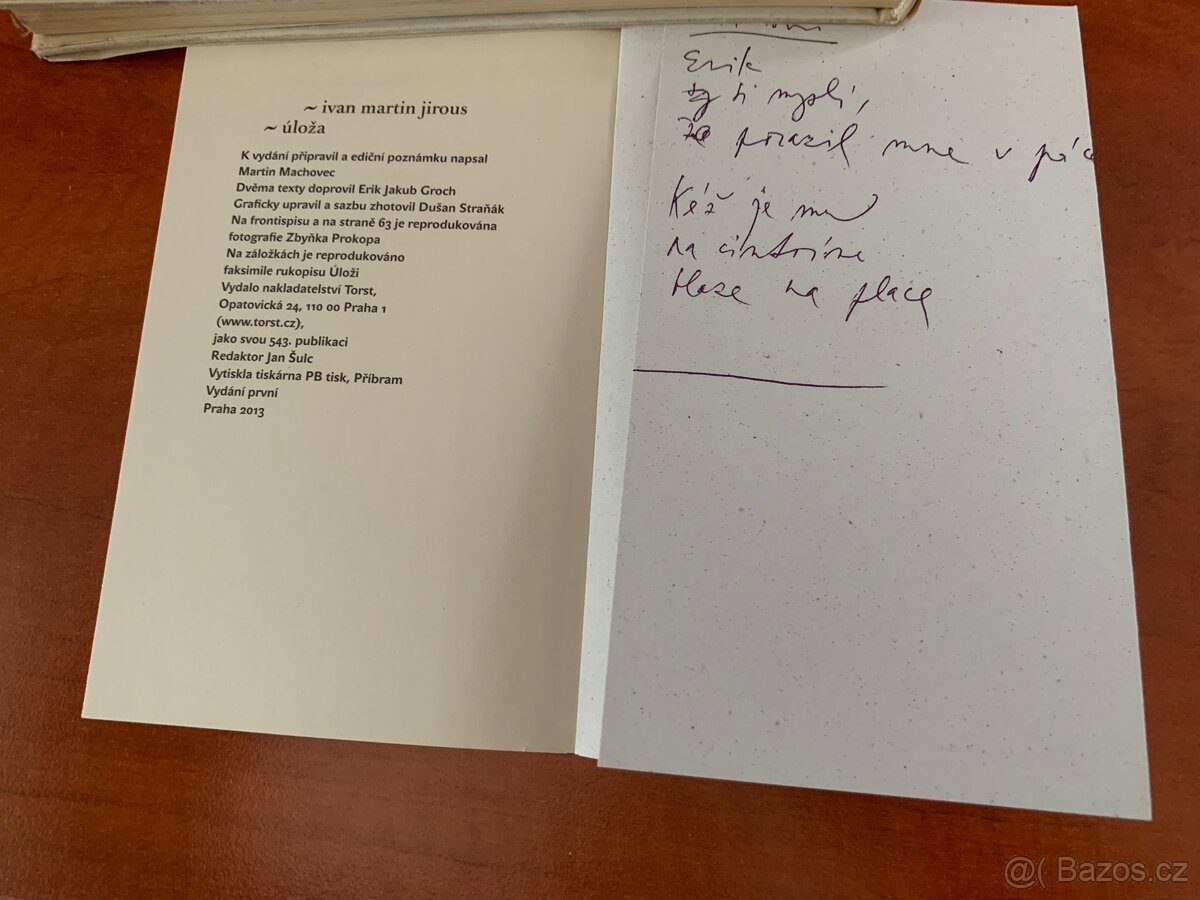 ~ ivan martin jirous
~ úloža
K vydání připravil a ediční poznámku napsal
Martin Machovec
Dvěma texty doprovil Erik Jakub Groch
Graficky upravil a sazbu zhotovil Dušan Straňák
Na frontispisu a na straně 63 je reprodukována
fotografie Zbyňka Prokopa
Na záložkách je reprodukováno
faksimile rukopisu Úloži
Vydalo nakladatelství Torst,
Opatovická 24, 110 00 Praha 1
(www.torst.cz),
jako svou 543. publikaci
Redaktor Jan Šulc
Vytiskla tiskárna PB tisk, Příbram
Vydání první
Praha 2013
Erik
si myslí,
že porazil mne v
Kéž je mu
na
blaze na place
@( Bazos.cz